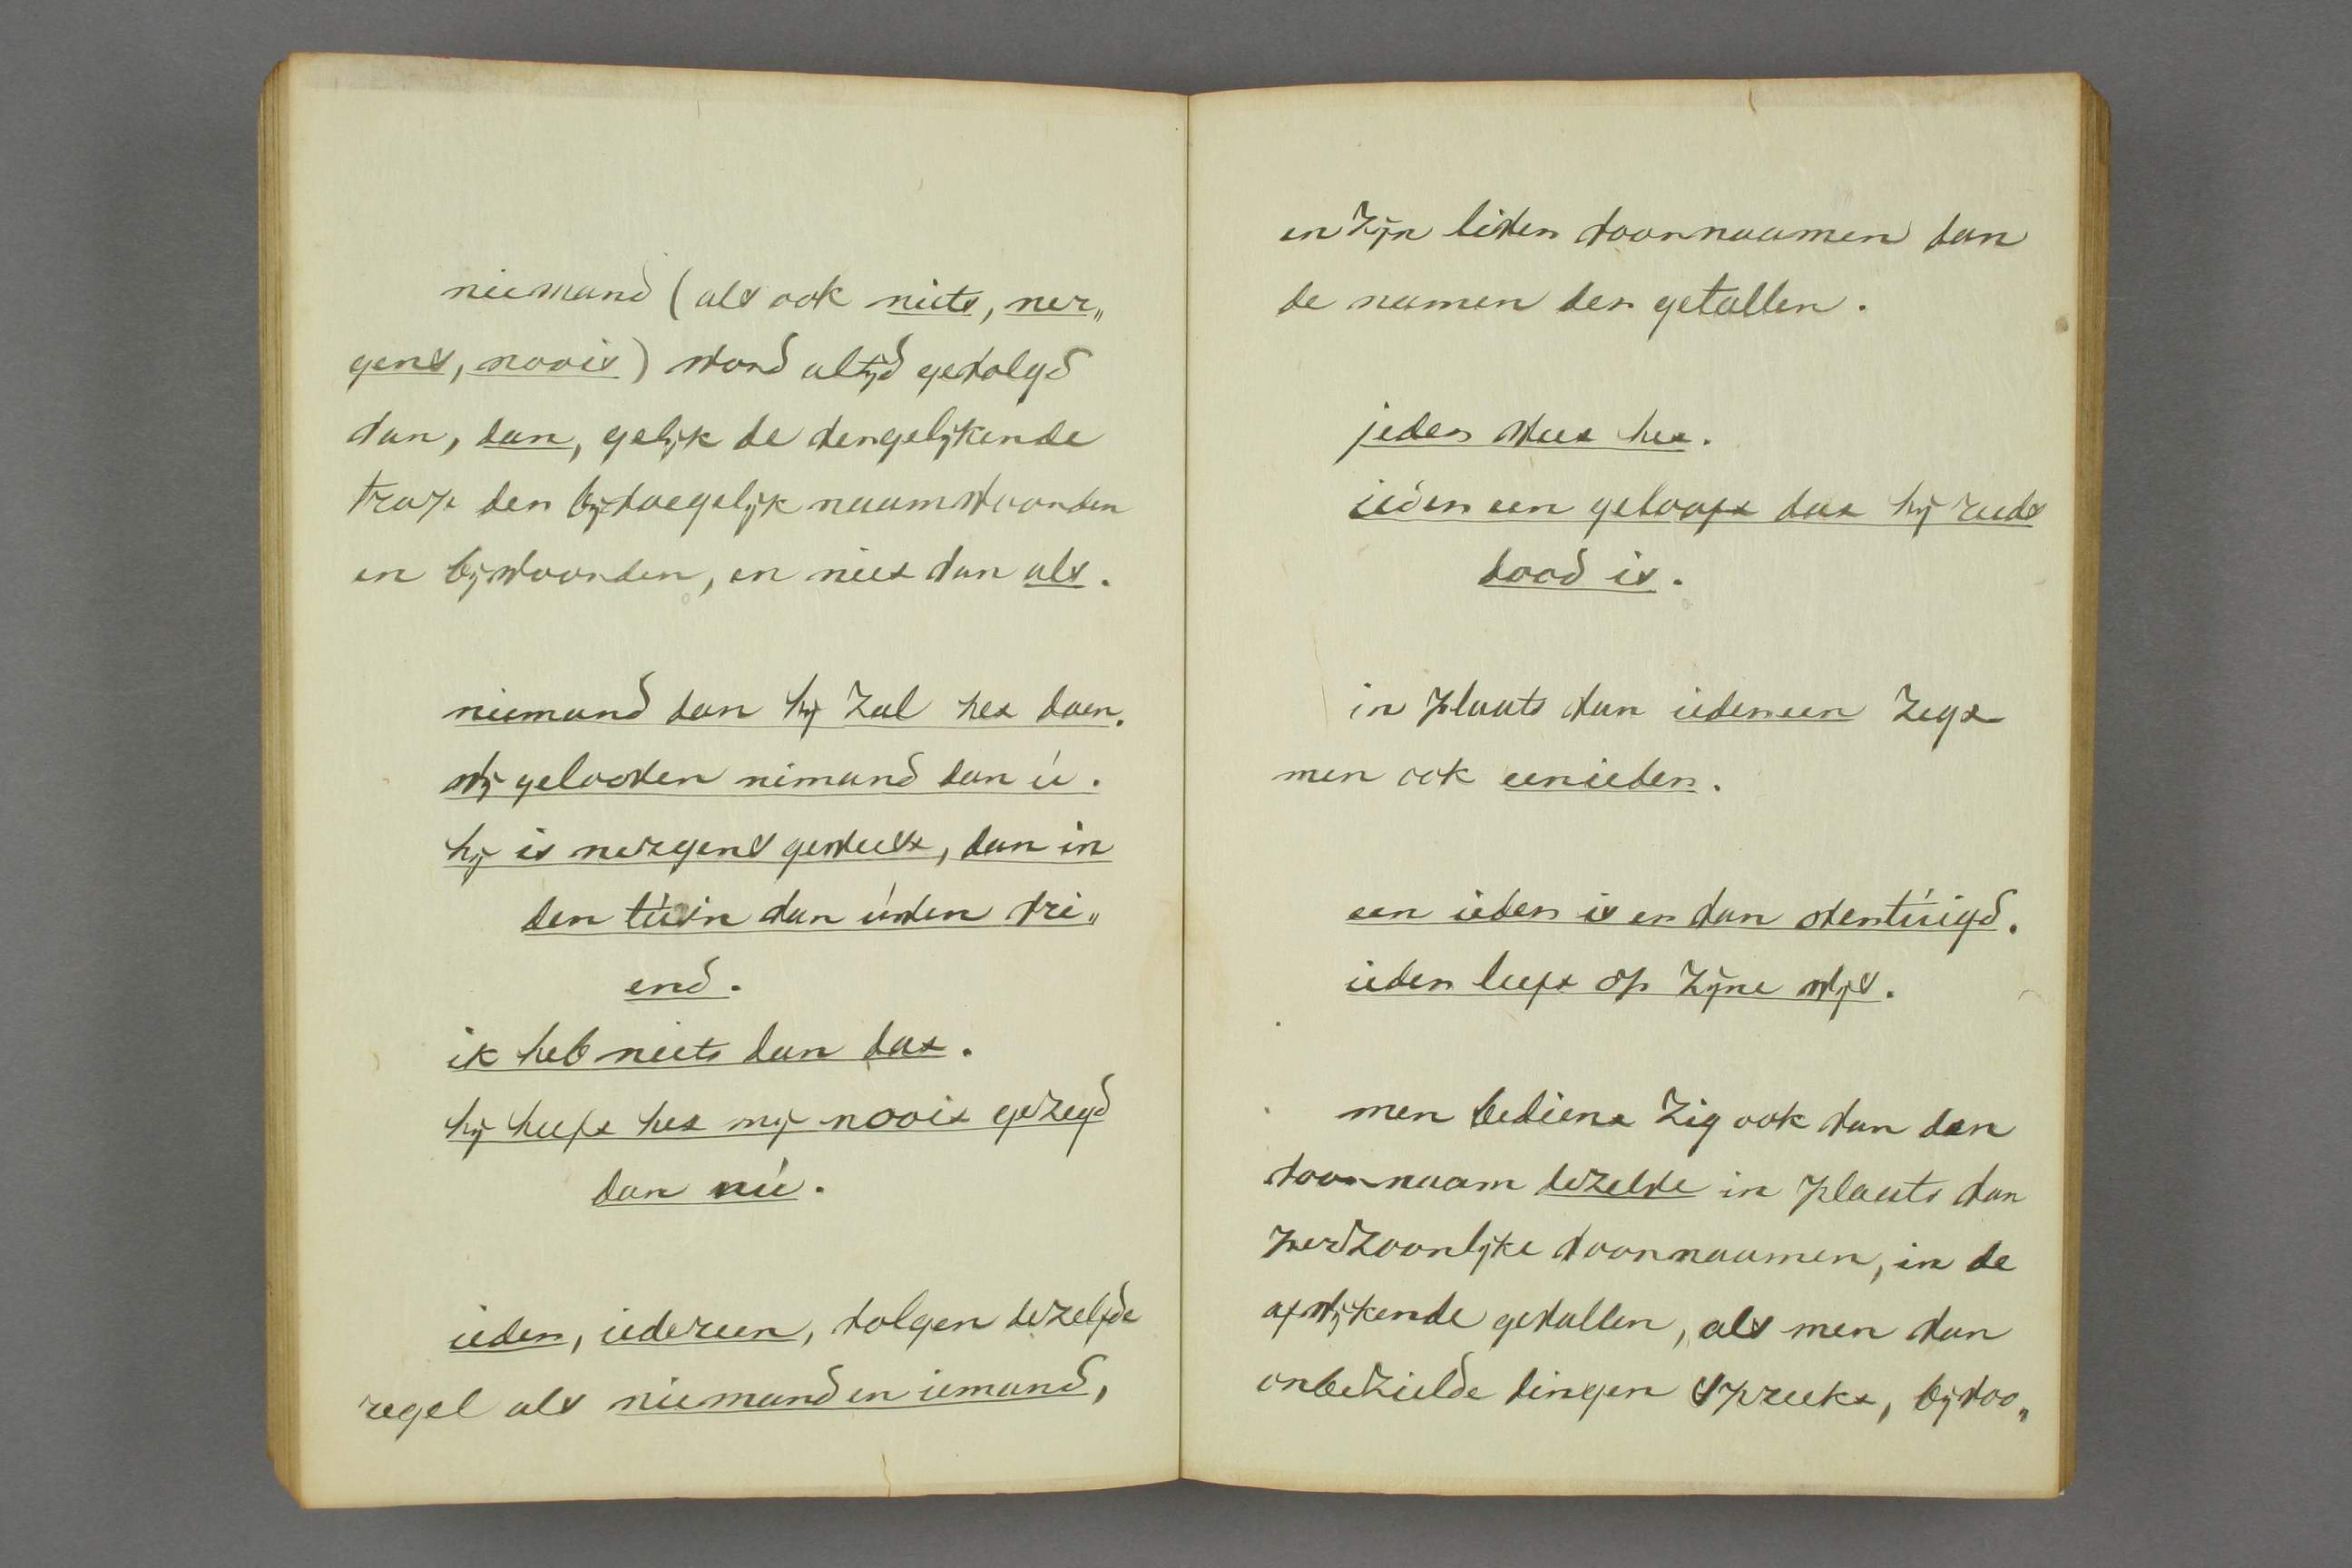 niemand (als ook niets, ner„
gens, nooit) word altyd gevolgd
van, dan, gelyk de vergelykende
trap der byvoegelyk naamwoorden
en bywoorden, en niet van als.
niemand dan hy zal het doen.
wy gelooven nimand dan ú.
hy is nergens geweest, dan in
den túin van úwen vri„
end.
ik heb niets dan dat.
hy heeft het my nooit gezegd
dan nú.
ieder, iedereen, volgen dezelfde
regel als niemand en iemand,
en zyn liever voornaamen dan
de namen der getallen.
jeder weet het.
ieder een gelooft dat hy reeds
dood is.
in plaats van iedereen zegt
men ook eenieder.
een ieder is er van overtúigd.
ieder leeft op zyne wys.
men bedient zig ook van den
voornaam dezelve in plaats van
perzoonlyke voornaamen, in de
afwykende gevallen, als men van
onbezielde dingen spreekt, byvoo„